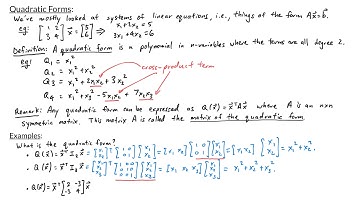 Quadratic Forms:
We've mostly looked at systems of linear equations, i.e., things of the form Ax⃗=b⃗.
eg: [1 2; 3 4] x⃗ = [5; 6] ⇒ x₁+2x₂=5
3x₁+4x₂=6
Definition: A quadratic form is a polynomial in n-variables where the terms are all degree 2.
eg: Q₁ = x₁²
Q₂ = x₁²+x₂²
Q₃ = x₁²+2x₁x₂+3x₂²
cross-product term
Q₄ = x₁²+x₂²-5x₁x₂+7x₂x₃
Remark: Any quadratic form can be expressed as Q(x⃗)=x⃗ᵀAx⃗ where A is an nxn
symmetric matrix. This matrix A is called the matrix of the quadratic form.
Examples:
What is the quadratic form?
• Q(x⃗)=x⃗ᵀI₂x⃗ = [x₁; x₂]ᵀ[1 0; 0 1][x₁; x₂] = [x₁ x₂][1 0; 0 1][x₁; x₂] = [x₁ x₂][x₁; x₂] = x₁²+x₂².
• Q(x⃗)=x⃗ᵀI₃x⃗ = [x₁; x₂; x₃]ᵀ[1 0 0; 0 1 0; 0 0 1][x₁; x₂; x₃] = [x₁ x₂ x₃][x₁; x₂; x₃] = x₁²+x₂²+x₃².
• Q(x⃗)=x⃗ᵀ[2 -3; -3 4]x⃗